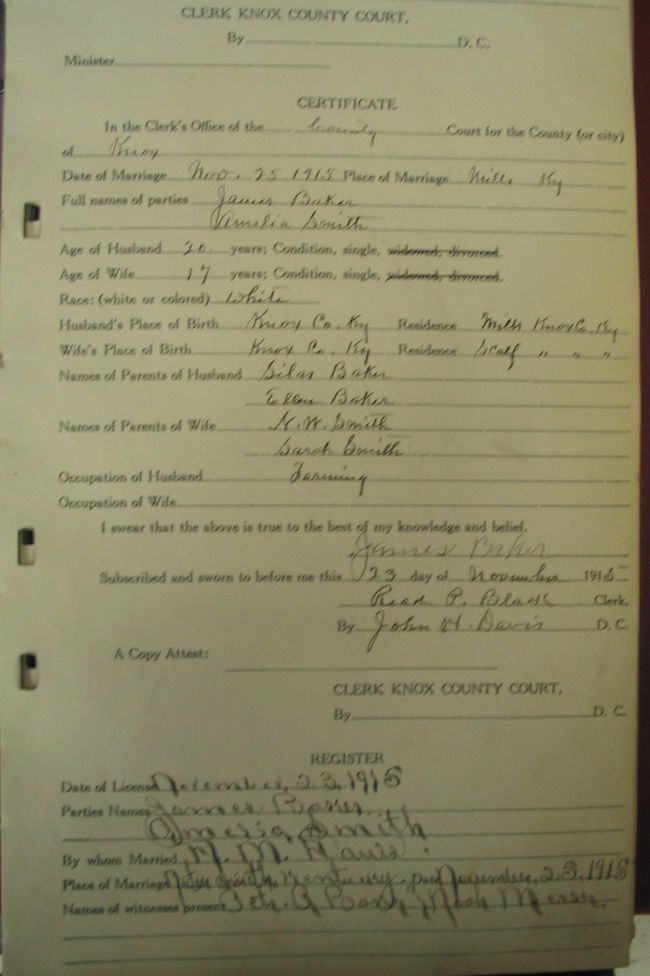 CLERK KNOX COUNTY COURT,
By D. C.
Minister
CERTIFICATE
In the Clerk's Office of the County Court for the County (or city)
of Knox
Date of Marriage Nov. 25 1915 Place of Marriage Mills Ky
Full names of parties James Baker
Amelia Smith
Age of Husband 20 years; Condition, single, widowed, divorced.
Age of Wife 17 years; Condition, single, widowed, divorced.
Race: (white or colored) White
Husband's Place of Birth Knox Co. Ky Residence Mills Knox Co. Ky
Wife's Place of Birth Knox Co. Ky Residence Scalf " " "
Names of Parents of Husband Silas Baker
Ellen Baker
Names of Parents of Wife N. W. Smith
Sarah Smith
Occupation of Husband Farming
Occupation of Wife
I swear that the above is true to the best of my knowledge and belief.
James Baker
Subscribed and sworn to before me this 23 day of November 1915
Read P. Black Clerk,
By John H. Davis D. C.
A Copy Attest:
CLERK KNOX COUNTY COURT,
By D. C.
REGISTER
Date of License November, 23, 1915
Parties Names James
Amelia Smith
By whom Married, M. Davis
Place of Marriage Kentucky. Day November, 23, 1915
Names of witnesses present